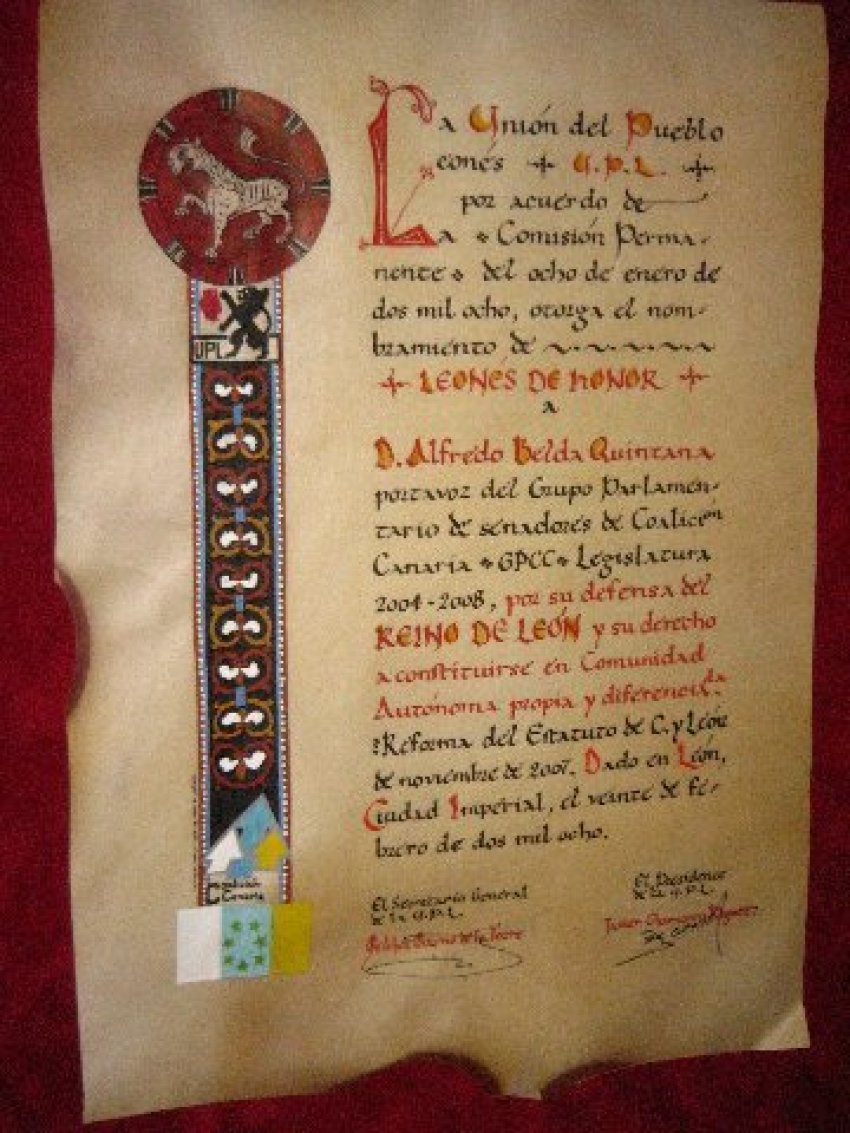 La Unión del Pueblo
Leonés U.P.L.
por acuerdo de
La Comisión Perma-
nente del ocho de enero de
dos mil ocho, otorga el nom-
bramiento de
LEONES DE HONOR
A
D. Alfredo Belda Quintana
portavoz del Grupo Parlamen-
tario de senadores de Coalicón
Canaria GPCC Legislatura
2004-2008, por su defensa del
REINO DE LEÓN y su derecho
a constituirse en Comunidad
Autónoma propia y diferenciada.
Reforma del Estatuto de C. y León
de noviembre de 2007. Dado en León,
Ciudad Imperial, el veinte de fe-
brero de dos mil ocho.
El Secretario General
de la U.P.L.
El Presidente
de la U.P.L.
UPL
Coalición
Canaria